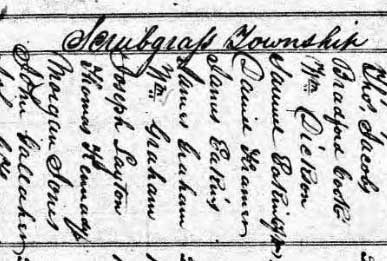 Scrubgrass Township
Thos. Jacobs
Bradford Cook
Wm Dickson
Samuel
Daniel Kramer
James Eakins
James Graham
Wm Graham
Joseph Layton
Thomas Kennedy
Morgan Jones
John Gallaher